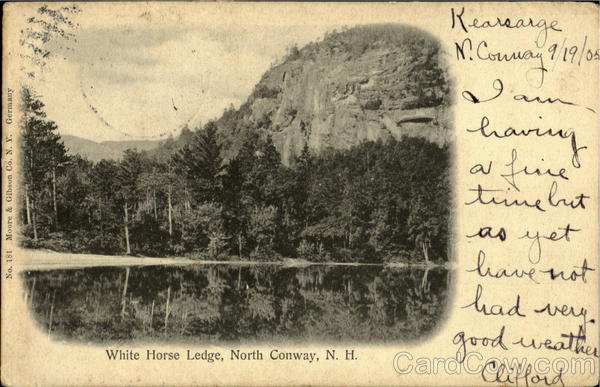 Kearsarge
N. Conway 9/19/05
I am
having
a fine
time but
as yet
have not
had very
good weather
Clifford
No. 181 Moore & Gibson Co. N. Y. Germany
White Horse Ledge, North Conway, N. H.
CardCow.com